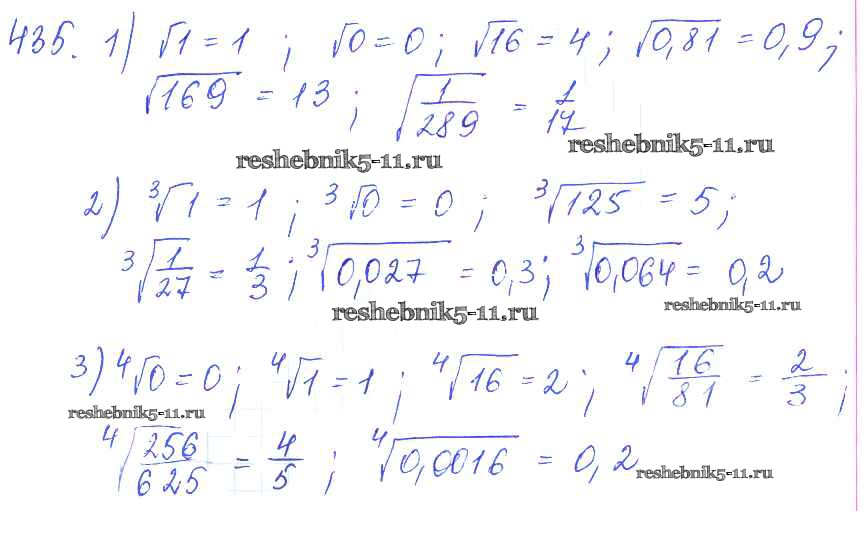 435. 1) √1 = 1 ; √0 = 0 ; √16 = 4 ; √0,81 = 0,9 ;
√169 = 13 ; √(1/289) = 1/17
reshebnik5-11.ru reshebnik5-11.ru
2) ³√1 = 1 ; ³√0 = 0 ; ³√125 = 5 ;
³√(1/27) = 1/3 ; ³√0,027 = 0,3 ; ³√0,064 = 0,2
reshebnik5-11.ru reshebnik5-11.ru
3) ⁴√0 = 0 ; ⁴√1 = 1 ; ⁴√16 = 2 ; ⁴√(16/81) = 2/3 ;
reshebnik5-11.ru
⁴√(256/625) = 4/5 ; ⁴√0,0016 = 0,2
reshebnik5-11.ru